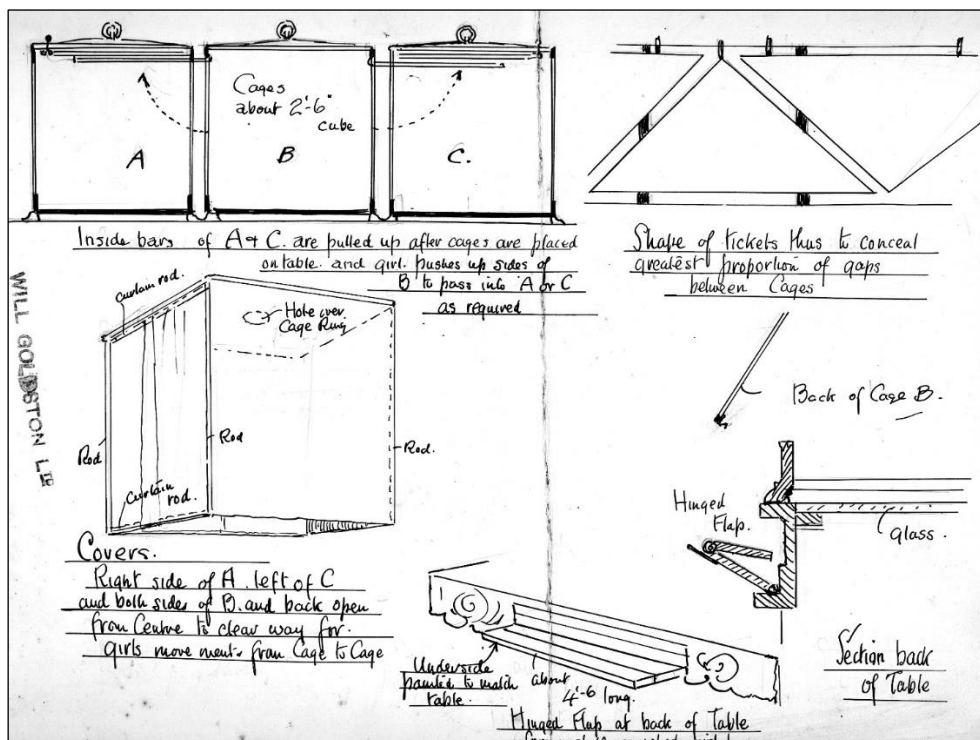 Cages
about 2'-6"
cube
A
B
C.
Inside bars of A & C. are pulled up after cages are placed
on table. and girl. pushes up sides of
B to pass into A or C
as required
Shape of tickets thus to conceal
greatest proportion of gaps
between Cages
WILL GOLDSTON LTD
Curtain rod.
Hole over
Cage Ring
Rod
Rod
Rod.
Curtain
rod.
Back of Cage B.
Hinged
Flap.
Glass.
Covers.
Right side of A. left of C
and both sides of B. and back open
from Centre to clear way for.
girls movement from Cage to Cage
Underside
painted to match
table.
about
4'-6 long.
Section back
of Table
Hinged Flap at back of Table